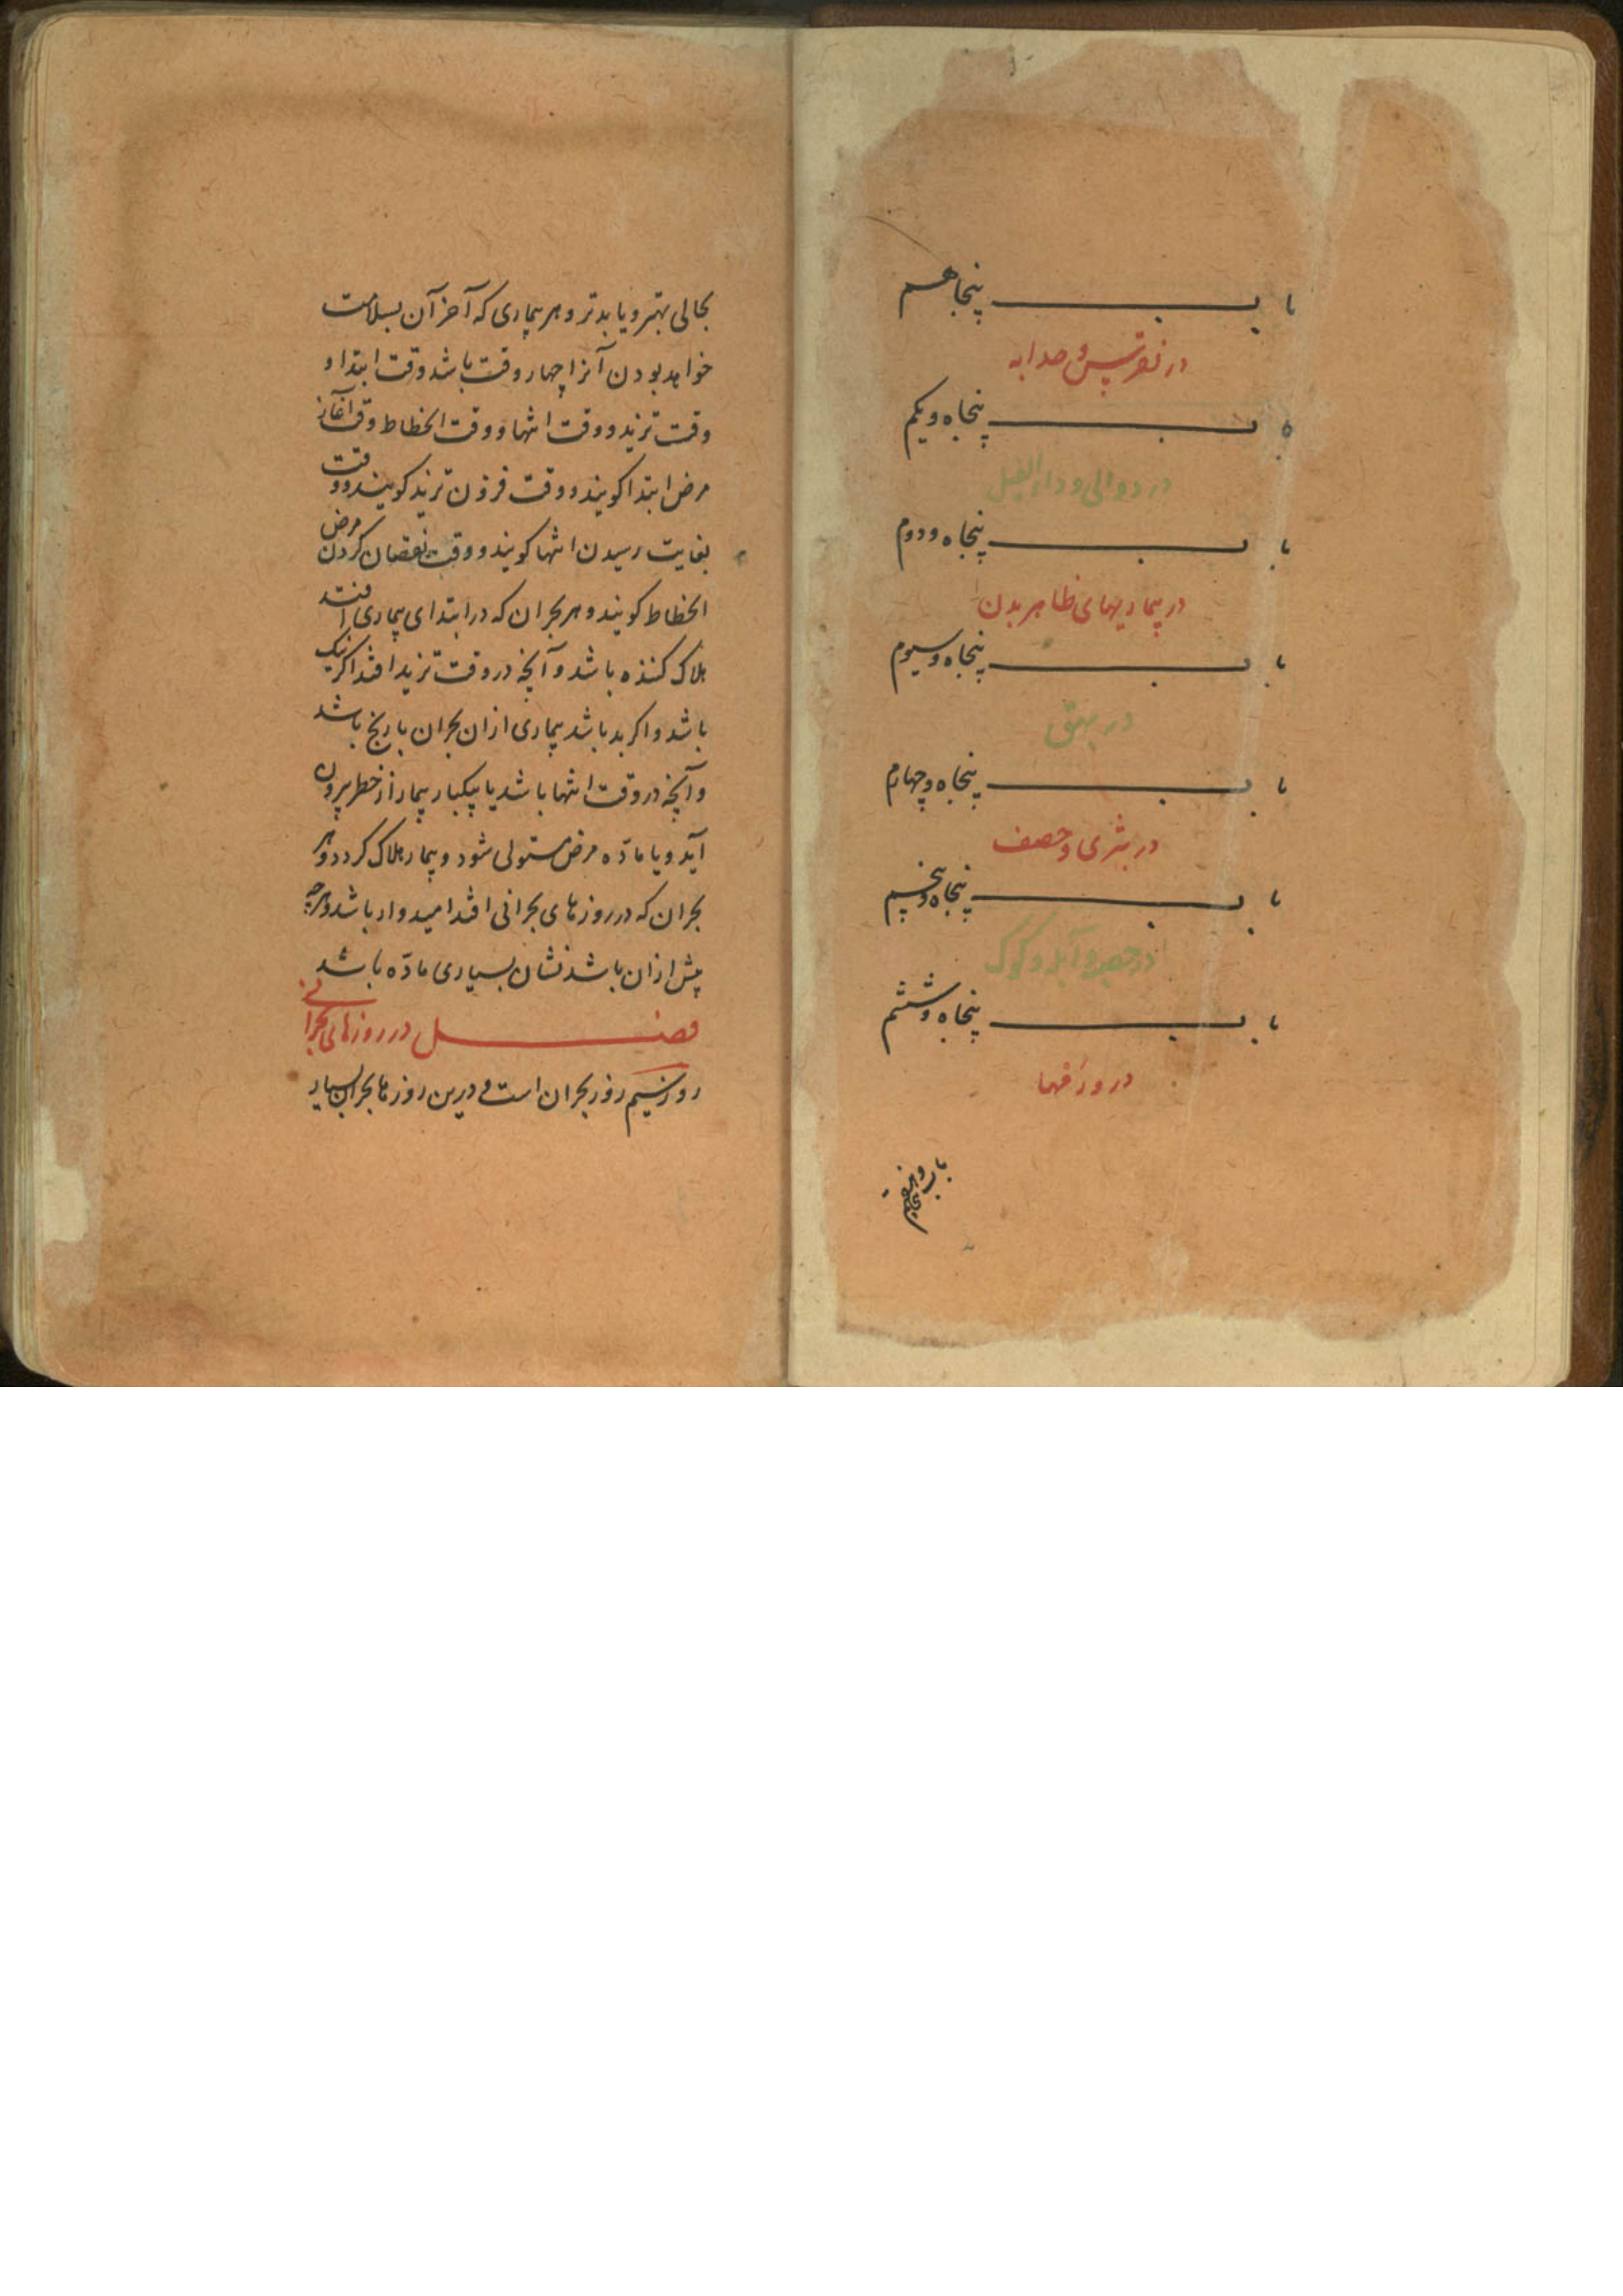 باب پنجاهم
در نقرس و حدابه
باب پنجاه و یکم
در دوالی و داء الفیل
باب پنجاه و دوم
در بیماریهای ظاهر بدن
باب پنجاه و سیوم
در بهق
باب پنجاه و چهارم
در بثری و حصف
باب پنجاه و پنجم
در حصبه و آبله و
باب پنجاه و ششم
در ورمها
بحالی بهتر و یا بدتر و هر بیماری که آخر آن بسلامت
خواهد بودن آنرا چهار وقت باشد وقت ابتدا و
وقت تزید و وقت انتها و وقت انحطاط وقت آغاز
مرض ابتدا کویند و وقت فزون تزید کویند و وقت
بغایت رسیدن انتها کویند و وقت نقصان کردن مرض
انحطاط کویند و هر بحران که در ابتدای بیماری افتد
هلاک کننده باشد و آنچه در وقت تزید افتد اکر نیک
باشد و اکر بد باشد بیماری ازان بحران با رنج باشد
و آنچه در وقت انتها باشد یا بیکبار بیمار از خطر بیرون
آید و یا ماده مرض مستولی شود و بیمار هلاک کردد و هر
بحران که در روزهای بحرانی افتد امیدوار باشد و هرچه
پیش ازان باشد نشان بسیاری ماده باشد
فصل در روزهای بحرانی
روز بیستم روز بحران است و درین روزها بحران بسیار